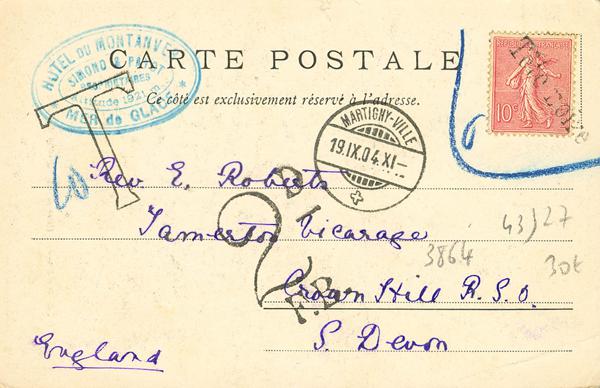 HOTEL DU MONTANVERT
SIMOND &
PROPRIÉTAIRES
MER de GLACE
CARTE POSTALE
Ce côté est exclusivement réservé à l'adresse.
RÉPUBLIQUE FRANÇAISE
10c
T
MARTIGNY-VILLE
19.IX.04.XI-
Rev. E. Roberts
Tamerton Vicarage
Crown Hill R.S.O.
S. Devon
England
2 D
F.B.
43/27
3864
30t